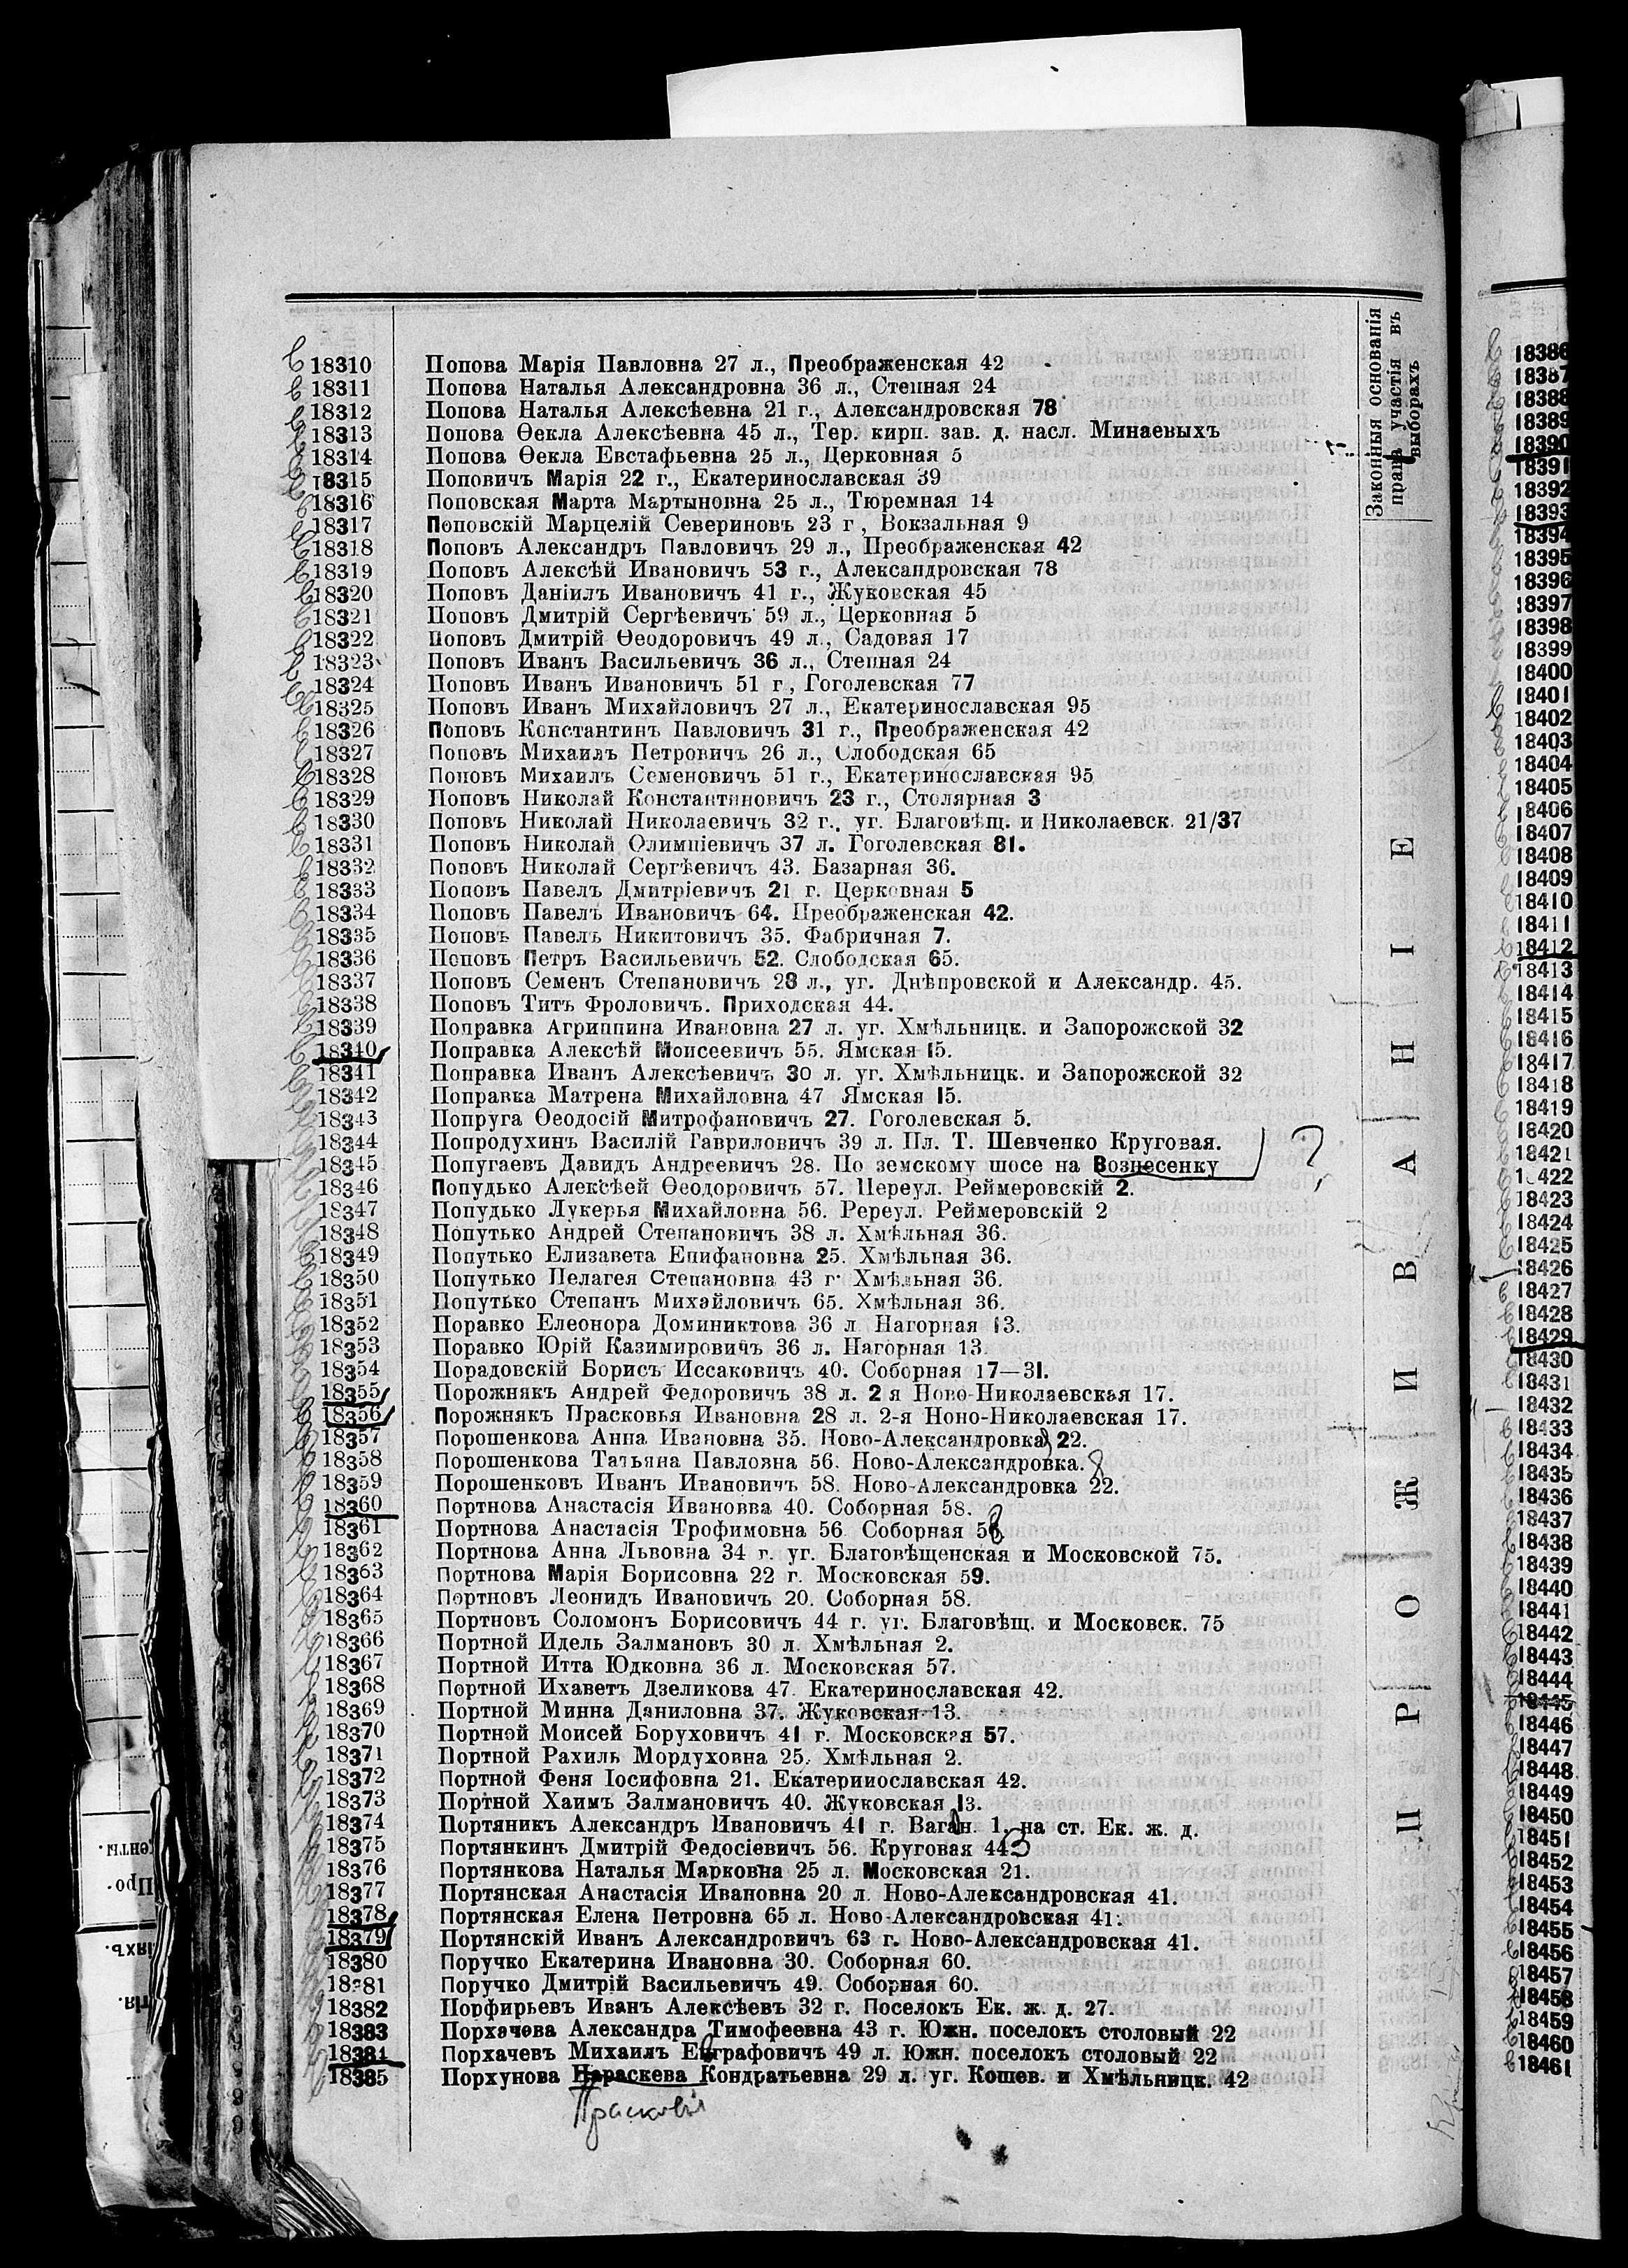 Законныя основанія
права участія въ
выборахъ
ПРОЖИВАНІЕ
18310 Попова Марія Павловна 27 л., Преображенская 42
18311 Попова Наталья Александровна 36 л., Степная 24
18312 Попова Наталья Алексѣевна 21 г., Александровская 78
18313 Попова Ѳекла Алексѣевна 45 л., Тер. кирп. зав. д. насл. Минаевыхъ
18314 Попова Ѳекла Евстафьевна 25 л., Церковная 5
18315 Поповичъ Марія 22 г., Екатеринославская 39
18316 Поповская Марта Мартыновна 25 л., Тюремная 14
18317 Поповскій Марцелій Севериновъ 23 г, Вокзальная 9
18318 Поповъ Александръ Павловичъ 29 л., Преображенская 42
18319 Поповъ Алексѣй Ивановичъ 53 г., Александровская 78
18320 Поповъ Даніилъ Ивановичъ 41 г., Жуковская 45
18321 Поповъ Дмитрій Сергѣевичъ 59 л., Церковная 5
18322 Поповъ Дмитрій Ѳеодоровичъ 49 л., Садовая 17
18323 Поповъ Иванъ Васильевичъ 36 л., Степная 24
18324 Поповъ Иванъ Ивановичъ 51 г, Гоголевская 77
18325 Поповъ Иванъ Михайловичъ 27 л., Екатеринославская 95
18326 Поповъ Константинъ Павловичъ 31 г., Преображенская 42
18327 Поповъ Михаилъ Петровичъ 26 л., Слободская 65
18328 Поповъ Михаилъ Семеновичъ 51 г., Екатеринославская 95
18329 Поповъ Николай Константиновичъ 23 г., Столярная 3
18330 Поповъ Николай Николаевичъ 32 г., уг. Благовѣщ. и Николаевск. 21/37
18331 Поповъ Николай Олимпіевичъ 37 л. Гоголевская 81.
18332 Поповъ Николай Сергѣевичъ 43. Базарная 36.
18333 Поповъ Павелъ Дмитріевичъ 21 г. Церковная 5
18334 Поповъ Павелъ Ивановичъ 64. Преображенская 42.
18335 Поповъ Павелъ Никитовичъ 35. Фабричная 7.
18336 Поповъ Петръ Васильевичъ 52. Слободская 65.
18337 Поповъ Семенъ Степановичъ 28 л., уг. Днѣпровской и Александр. 45.
18338 Поповъ Титъ Фроловичъ. Приходская 44.
18339 Поправка Агриппина Ивановна 27 л. уг. Хмѣльницк. и Запорожской 32
18340 Поправка Алексѣй Моисеевичъ 55. Ямская 15.
18341 Поправка Иванъ Алексѣевичъ 30 л. уг. Хмѣльницк. и Запорожской 32
18342 Поправка Матрена Михайловна 47 Ямская 15.
18343 Попруга Ѳеодосій Митрофановичъ 27. Гоголевская 5.
18344 Попродухинъ Василій Гавриловичъ 39 л. Пл. Т. Шевченко Круговая. ?
18345 Попугаевъ Давидъ Андреевичъ 28. По земскому шосе на Вознесенку
18346 Попудько Алексѣей Ѳеодоровичъ 57. Переул. Реймеровскій 2.
18347 Попудько Лукерья Михайловна 56. Ререул. Реймеровскій 2
18348 Попутько Андрей Степановичъ 38 л. Хмѣльная 36.
18349 Попутько Елизавета Епифановна 25. Хмѣльная 36.
18350 Попутько Пелагея Степановна 43 г. Хмѣльная 36.
18351 Попутько Степанъ Михайловичъ 65. Хмѣльная 36.
18352 Поравко Елеонора Доминиктова 36 л Нагорная 13.
18353 Поравко Юрій Казимировичъ 36 л. Нагорная 13.
18354 Порадовскій Борисъ Иссаковичъ 40. Соборная 17—31.
18355 Порожнякъ Андрей Федоровичъ 38 л. 2 я Ново-Николаевская 17.
18356 Порожнякъ Прасковья Ивановна 28 л. 2-я Ноно-Николаевская 17.
18357 Порошенкова Анна Ивановна 35. Ново-Александровка 22.
18358 Порошенкова Татьяна Павловна 56. Ново-Александровка.
18359 Порошенковъ Иванъ Ивановичъ 58. Ново-Александровка 22.
18360 Портнова Анастасія Ивановва 40. Соборная 58.
18361 Портнова Анастасія Трофимовна 56 Соборная 58
18362 Портнова Анна Львовна 34 г. уг. Благовѣщенская и Московской 75.
18363 Портнова Марія Борисовна 22 г. Московская 59.
18364 Портновъ Леонидъ Ивановичъ 20. Соборная 58.
18365 Портновъ Соломонъ Борисовичъ 44 г. уг. Благовѣщ. и Московск. 75
18366 Портной Идель Залмановъ 30 л. Хмѣльная 2.
18367 Портной Итта Юдковна 36 л. Московская 57.
18368 Портной Ихаветъ Дзеликова 47. Екатеринославская 42.
18369 Портной Минна Даниловна 37. Жуковская 13.
18370 Портной Моисей Боруховичъ 41 г. Московская 57.
18371 Портной Рахиль Мордуховна 25. Хмѣльная 2.
18372 Портной Феня Іосифовна 21. Екатеринославская 42.
18373 Портной Хаимъ Залмановичъ 40. Жуковская 13.
18374 Портяникъ Александръ Ивановичъ 41 г. Вагон. 1. на ст. Ек. ж. д.
18375 Портянкинъ Дмитрій Федосіевичъ 56. Круговая 443
18376 Портянкова Наталья Марковна 25 л. Московская 21.
18377 Портянская Анастасія Ивановна 20 л. Ново-Александровская 41.
18378 Портянская Елена Петровна 65 л. Ново-Александровская 41.
18379 Портянскій Иванъ Александровичъ 63 г. Ново-Александровская 41.
18380 Поручко Екатерина Ивановна 30. Соборная 60.
18381 Поручко Дмитрій Васильевичъ 49. Соборная 60.
18382 Порфирьевъ Иванъ Алексѣевъ 32 г. Поселокъ Ек. ж. д. 27.
18383 Порхачева Александра Тимофеевна 43 г. Южн. поселокъ столовый 22
18384 Порхачевъ Михаилъ Евграфовичъ 49 л. Южн. поселокъ столовый 22
18385 Порхунова Нараскева Кондратьевна 29 л. уг. Кошев. и Хмѣльницк. 42
Прасковія
18386
18387
18388
18389
18390
18391
18392
18393
18394
18395
18396
18397
18398
18399
18400
18401
18402
18403
18404
18405
18406
18407
18408
18409
18410
18411
18412
18413
18414
18415
18416
18417
18418
18419
18420
18421
18422
18423
18424
18425
18426
18427
18428
18429
18430
18431
18432
18433
18434
18435
18436
18437
18438
18439
18440
18441
18442
18443
18444
18445
18446
18447
18448
18449
18450
18451
18452
18453
18454
18455
18456
18457
18458
18459
18460
18461